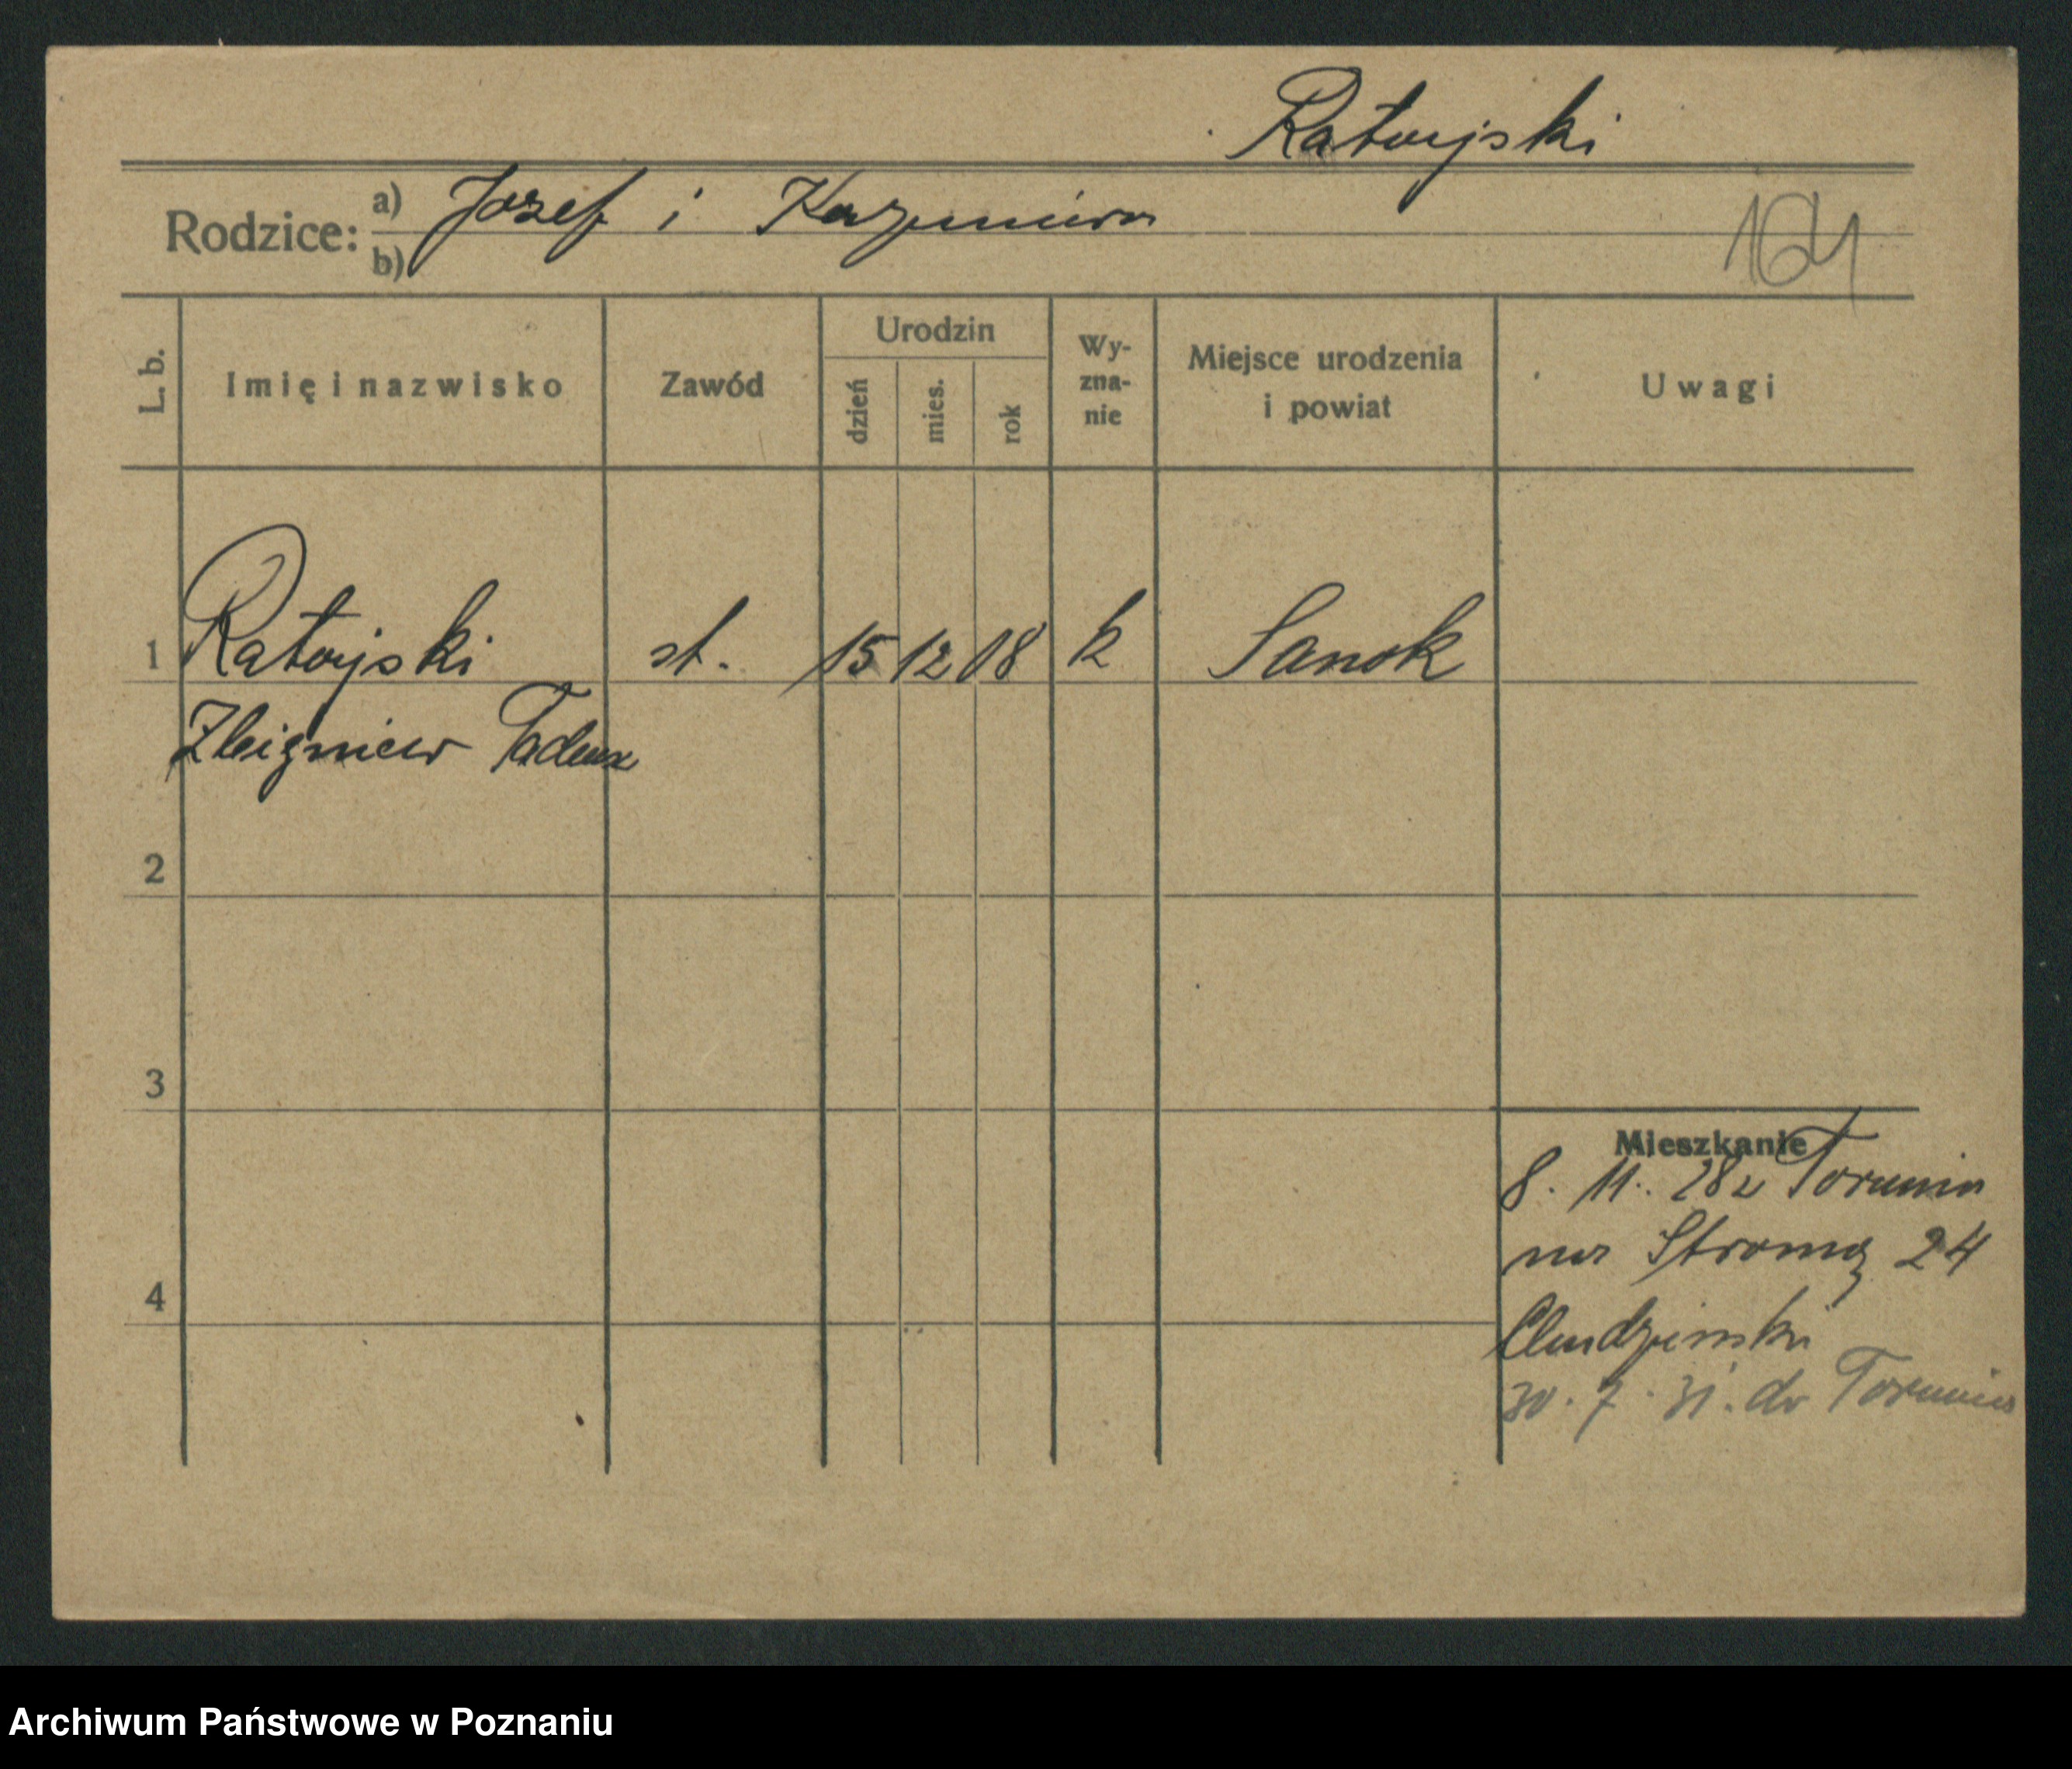 Ratajski
Rodzice: a) Jozef i Kazimiera
b)
164
L. b.
Imię i nazwisko
Zawód
Urodzin
dzień
mies.
rok
Wy-
zna-
nie
Miejsce urodzenia
i powiat
Uwagi
1 Ratajski st. 15 12 18 k Sanok
Zbigniew Tadeusz
2
3
4
Mieszkanie
8. 11. 28 z Torunia
na Stromą 24
30. 7. 31. do Torunia
Archiwum Państwowe w Poznaniu